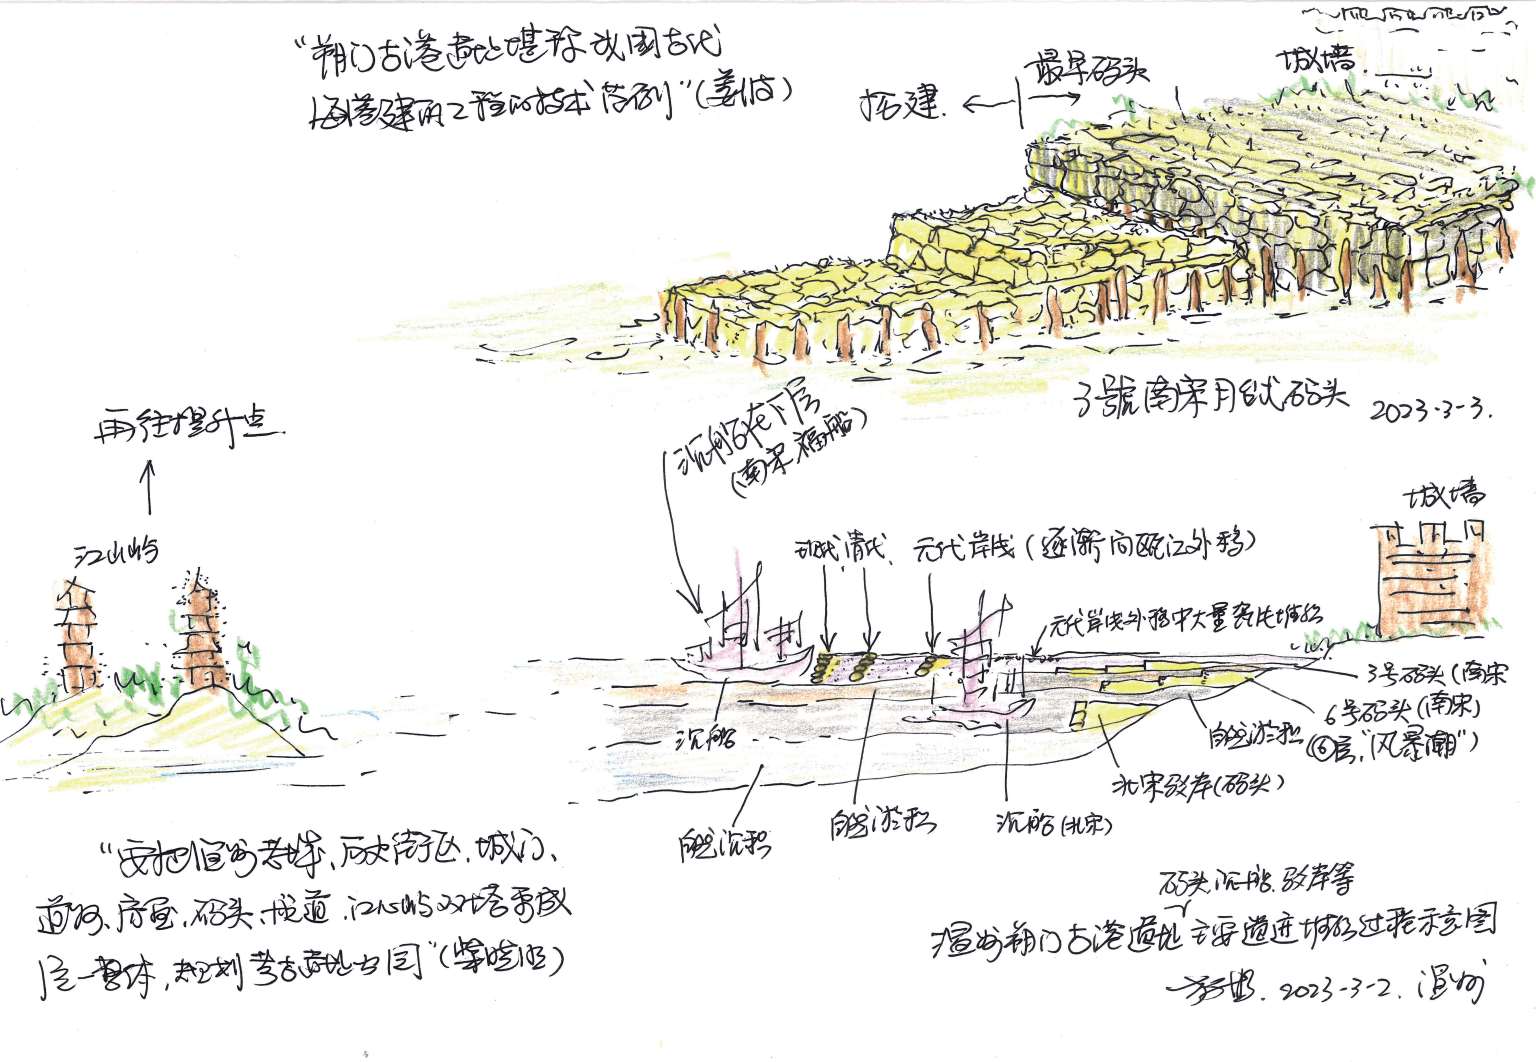 “朔门古港遗址堪称我国古代
海港建筑工程的技术范例”(姜波)
拓建.
最早码头
城墙.
3號南宋月台式码头 2023.3-3.
再往提升点.
江心屿
沉船在下层
(南宋福船)
现代, 清代, 元代岸线 (逐渐向瓯江外移)
城墙
元代岸线外移中大量瓷片堆积
3号码头(南宋
6号码头(南宋)
⑥层,“风暴潮”)
自然淤积
北宋驳岸(码头)
沉船
自然沉积
自然淤积
沉船(北宋)
“要把温州老城、历史街区、城门、
道路、房屋、码头、栈道、江心屿双塔
一整体, 规划考古遗址公园”(
码头,沉船,驳岸等
温州朔门古港遗址主要遗迹堆积过程示意图
2023-3-2. 温州